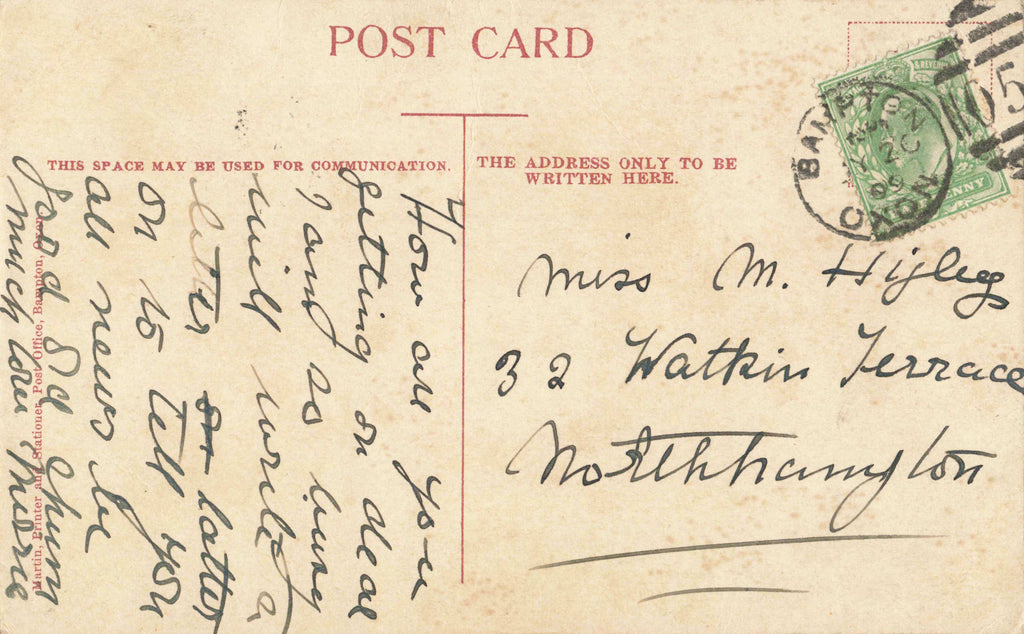 POST CARD
THIS SPACE MAY BE USED FOR COMMUNICATION.
THE ADDRESS ONLY TO BE
WRITTEN HERE.
& REVENUE
PENNY
BAMPTON
OXON
09
05
Miss M. Higley
32 Watkin Terrace
Northhampton
How are you
getting on dear
I am so busy
will write a
letter or latter
on to tell you
all news be
good old chum
much love
Martin, Printer and Stationer, Post Office, Bampton, Oxon